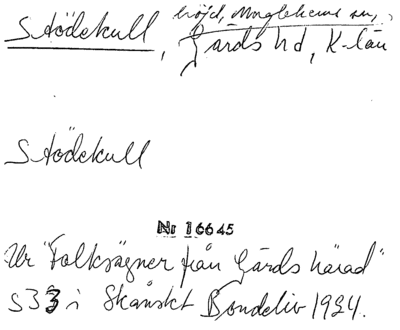 Stödekull, höjd, Maglehems sn,
Gärds hd, K-län
Stödekull
Nr 16645
Ur "Folksägner från Gärds härad"
S 33 i Skånskt Bondeliv 1934.